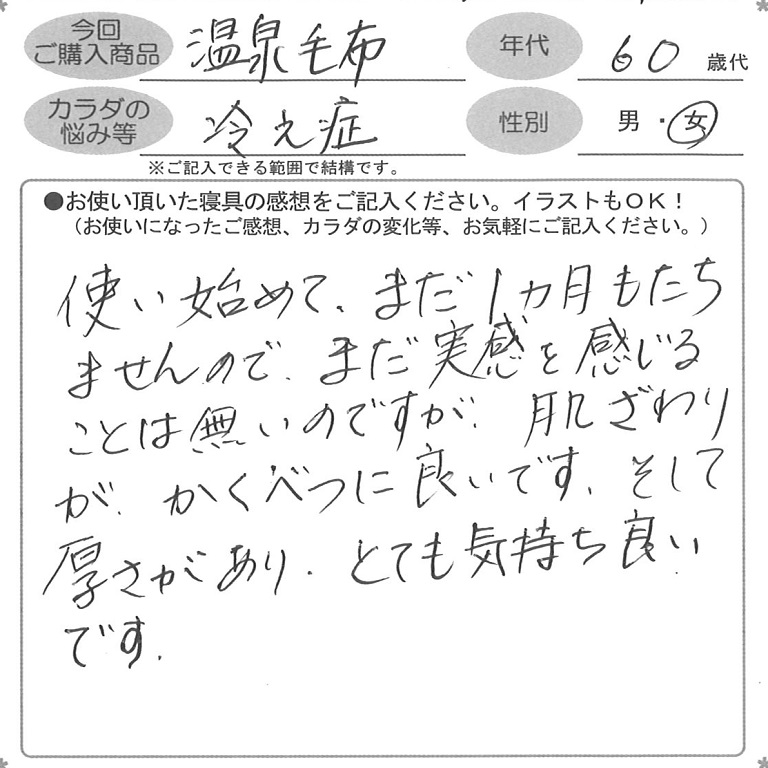 今回
ご購入商品
温泉毛布
年代
60 歳代
カラダの
悩み等
冷え症
性別
男・女
※ご記入できる範囲で結構です。
●お使い頂いた寝具の感想をご記入ください。イラストもOK！
（お使いになったご感想、カラダの変化等、お気軽にご記入ください。）
使い始めて、まだ1カ月もたち
ませんので、まだ実感を感じる
ことは無いのですが、肌ざわり
が、かくべつに良いです、そして
厚さがあり、とても気持ち良い
です。